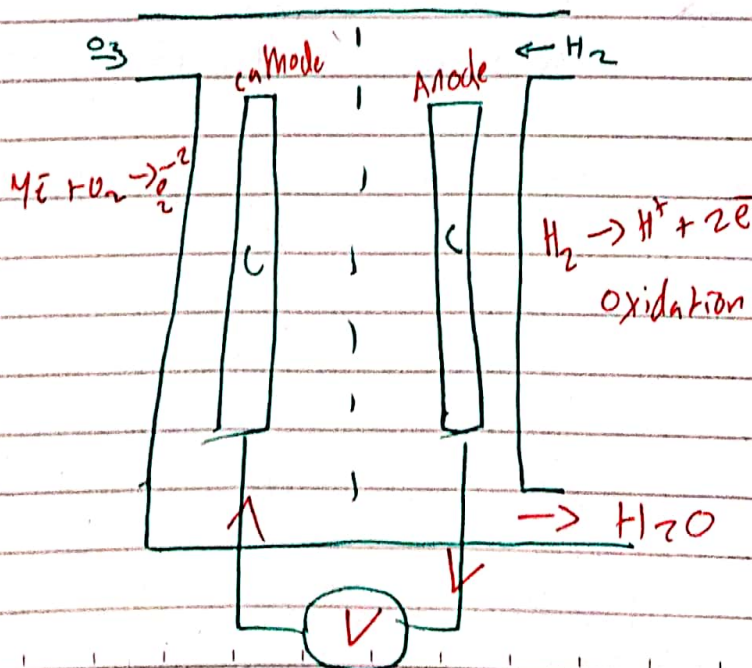 O2 →
cathode
Anode
← H2
4e̅ + O2 → O2⁻²
C
C
H2 → H⁺ + 2e̅
oxidation
→ H2O
V